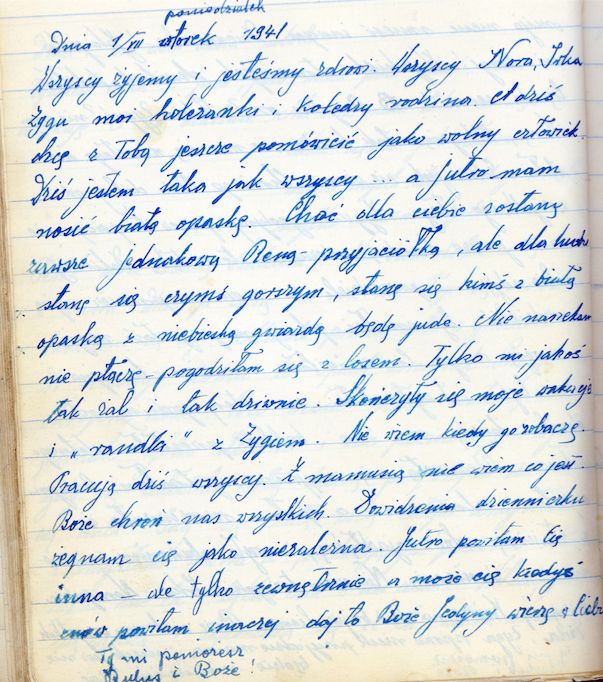 poniedziałek
Dnia 1/VII wtorek 1941
Wszyscy żyjemy i jesteśmy zdrowi. Wszyscy Nora, Irka
Zygu moi koleżanki i koledzy rodzina. A dziś
chcę z Tobą jeszcze pomówicić jako wolny człowiek.
Dziś jestem taka jak wszyscy ... a jutro mam
nosić białą opaskę. Choć dla ciebie zostanę
zawsze jednakową Reną-przyjaciółką, ale dla
stanę się czymś gorszym, stanę się kimś z białą
opaską z niebieską gwiazdą będę jude. Nie narzekam
nie płaczę-pogodziłam się z losem. Tylko mi jakoś
tak żal i tak dziwnie. Skończyły się moje wakacje
i „randki" z Zygiem. Nie wiem kiedy go zobaczę.
Pracują dziś wszyscy. Z mamusią nie wiem co jest.
Boże chroń nas wszystkich. Dowidzenia dzienniczku
żegnam cię jako niezależna. Jutro powitam Cię
inna – ale tylko zewnętrznie a może cię kiedyś
znów powitam inaczej daj to Boże Jedyny wierzę w Ciebie
Ty mi pomożesz
Buluś i Boże!